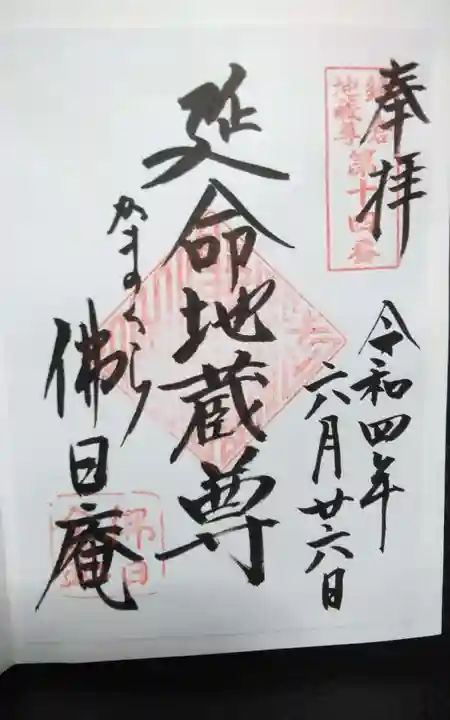 奉拝
鎌倉
地蔵尊
第十四番
令和四年
六月廿六日
延命地蔵尊
かまくら
佛日庵